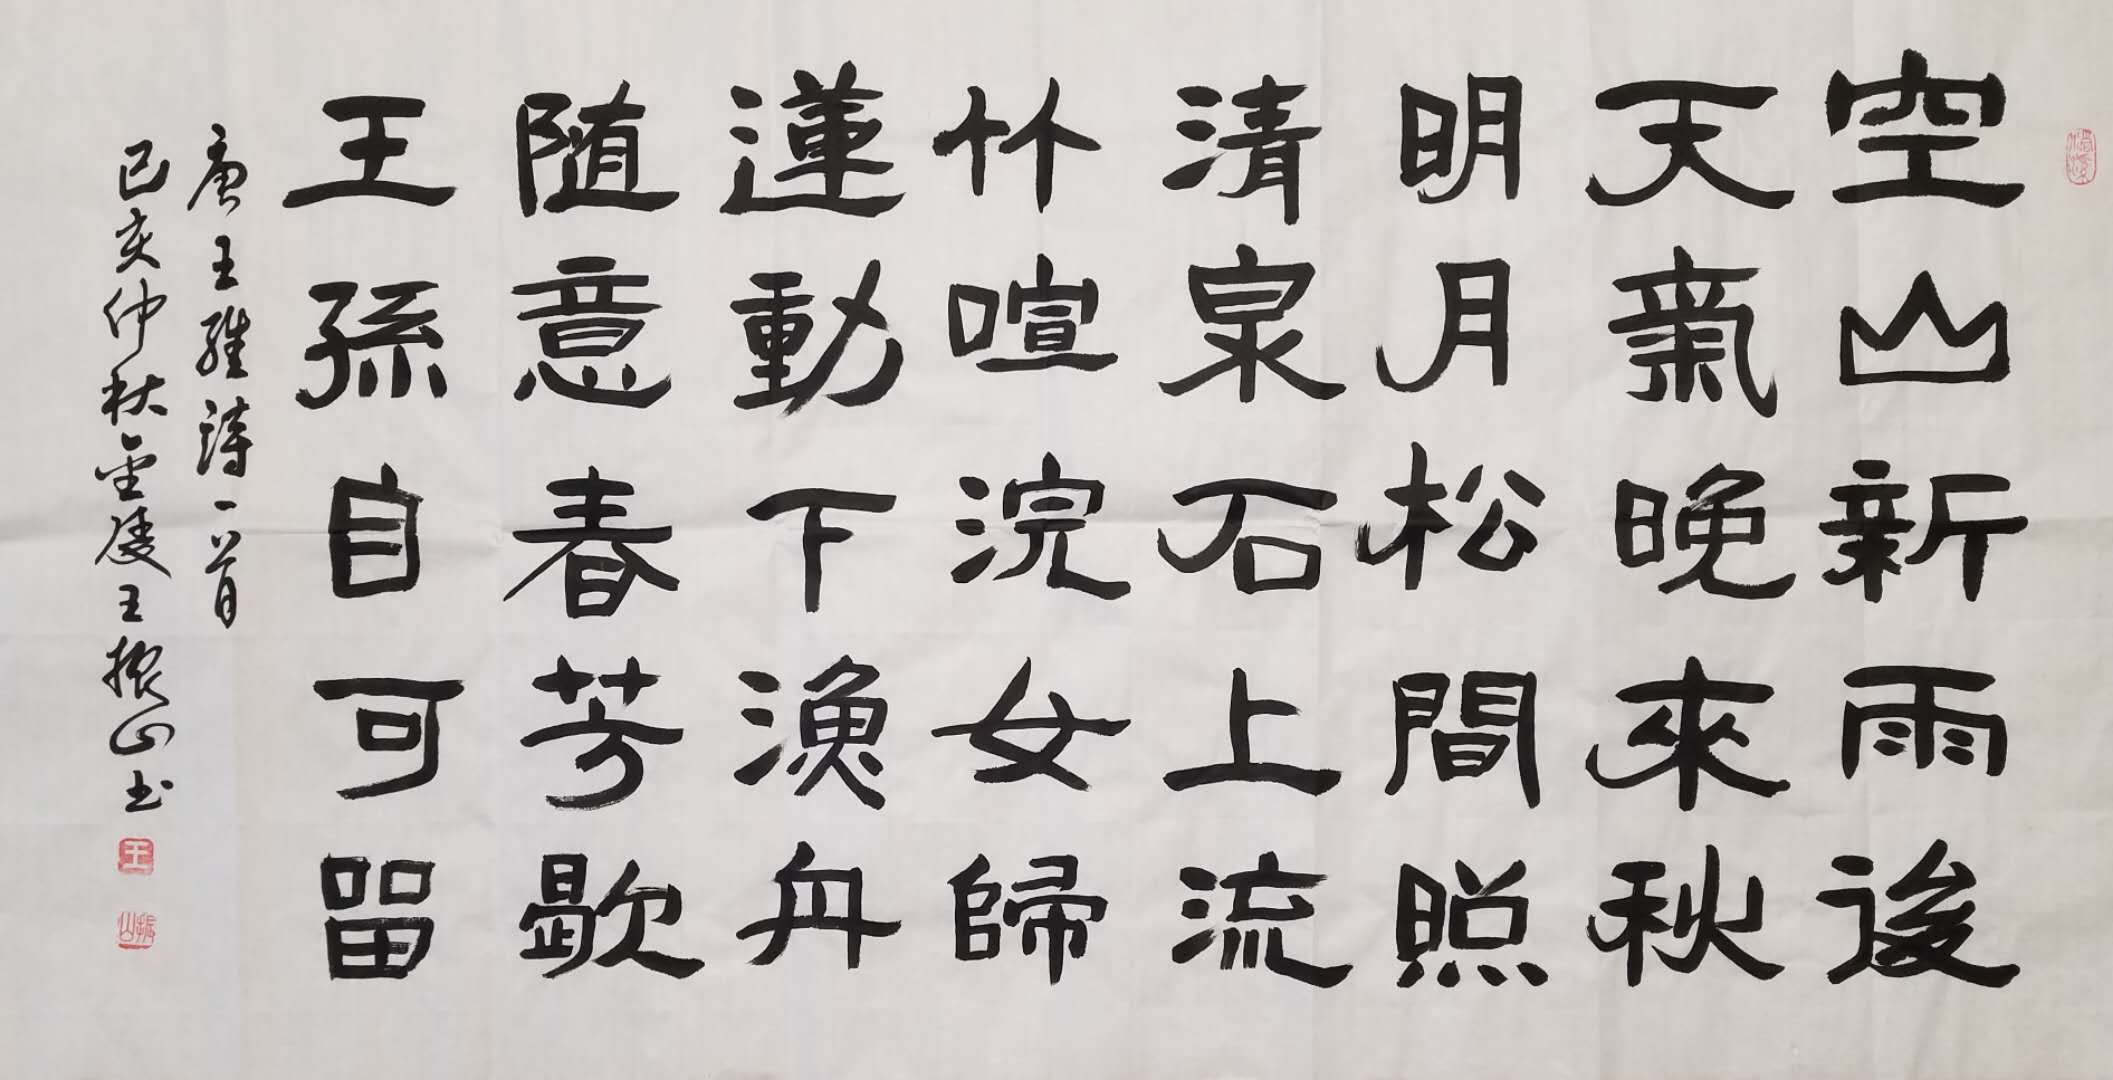 空山新雨後
天氣晚來秋
明月松間照
清泉石上流
竹喧浣女歸
蓮動下漁舟
随意春芳歇
王孫自可留
唐王維詩一首
己亥仲秋金陵王振山书
王
振山